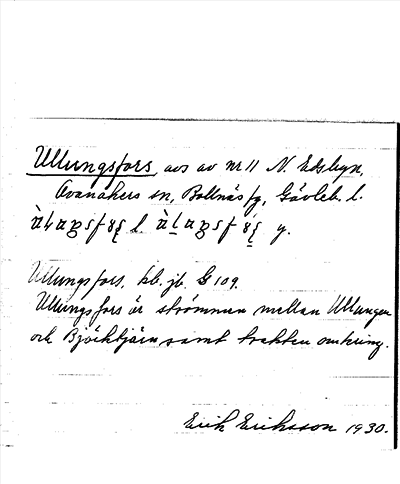 Ullungsfors, avs av nr 11 N. Edsbyn,
Ovanåkers sn, Bollnäs fg, Gävleb. l.
l. y.
Ullungsfors, hb. jb. G 109.
Ullungsfors är strömmen mellan Ullungen
och Björktjärn samt trakten omkring.
Erik Eriksson 1930.